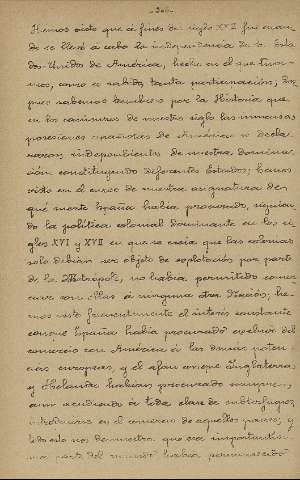 - 320 -
Hemos visto que á fines del siglo XVIII fué cuan-
do se llevó á cabo la independencia de los Esta-
dos-Unidos de América, hecho en el que tuvi-
mos, como es sabido tanta participación; des-
pues sabemos tambien por la Historia que
en los comienzos de nuestro siglo las inmensas
posesiones españolas de América se decla-
raron independientes de nuestra domina-
ción constituyendo diferentes Estados; hemos
visto en el curso de nuestra asignatura den
qué manera España había procurado, siguien-
do la política colonial dominante en los si-
glos XVI y XVII en que se creía que las colonias
solo debian ser objeto de explotación por parte
de la Metrópoli, no había permitido comer-
ciar con ellas á ninguna otra Nación; he-
mos visto frecuentemente el interés constante
con que España había procurado excluir del
comercio con América á las demás poten-
cias europeas, y el afan con que Inglaterra
y Holanda habían procurado siempre,
aun acudiendo á toda clase de subterfugios
introducirse en el comercio de aquellos paises, y
todo esto nos demuestra que esa importantísi-
ma parte del mundo había permanecido